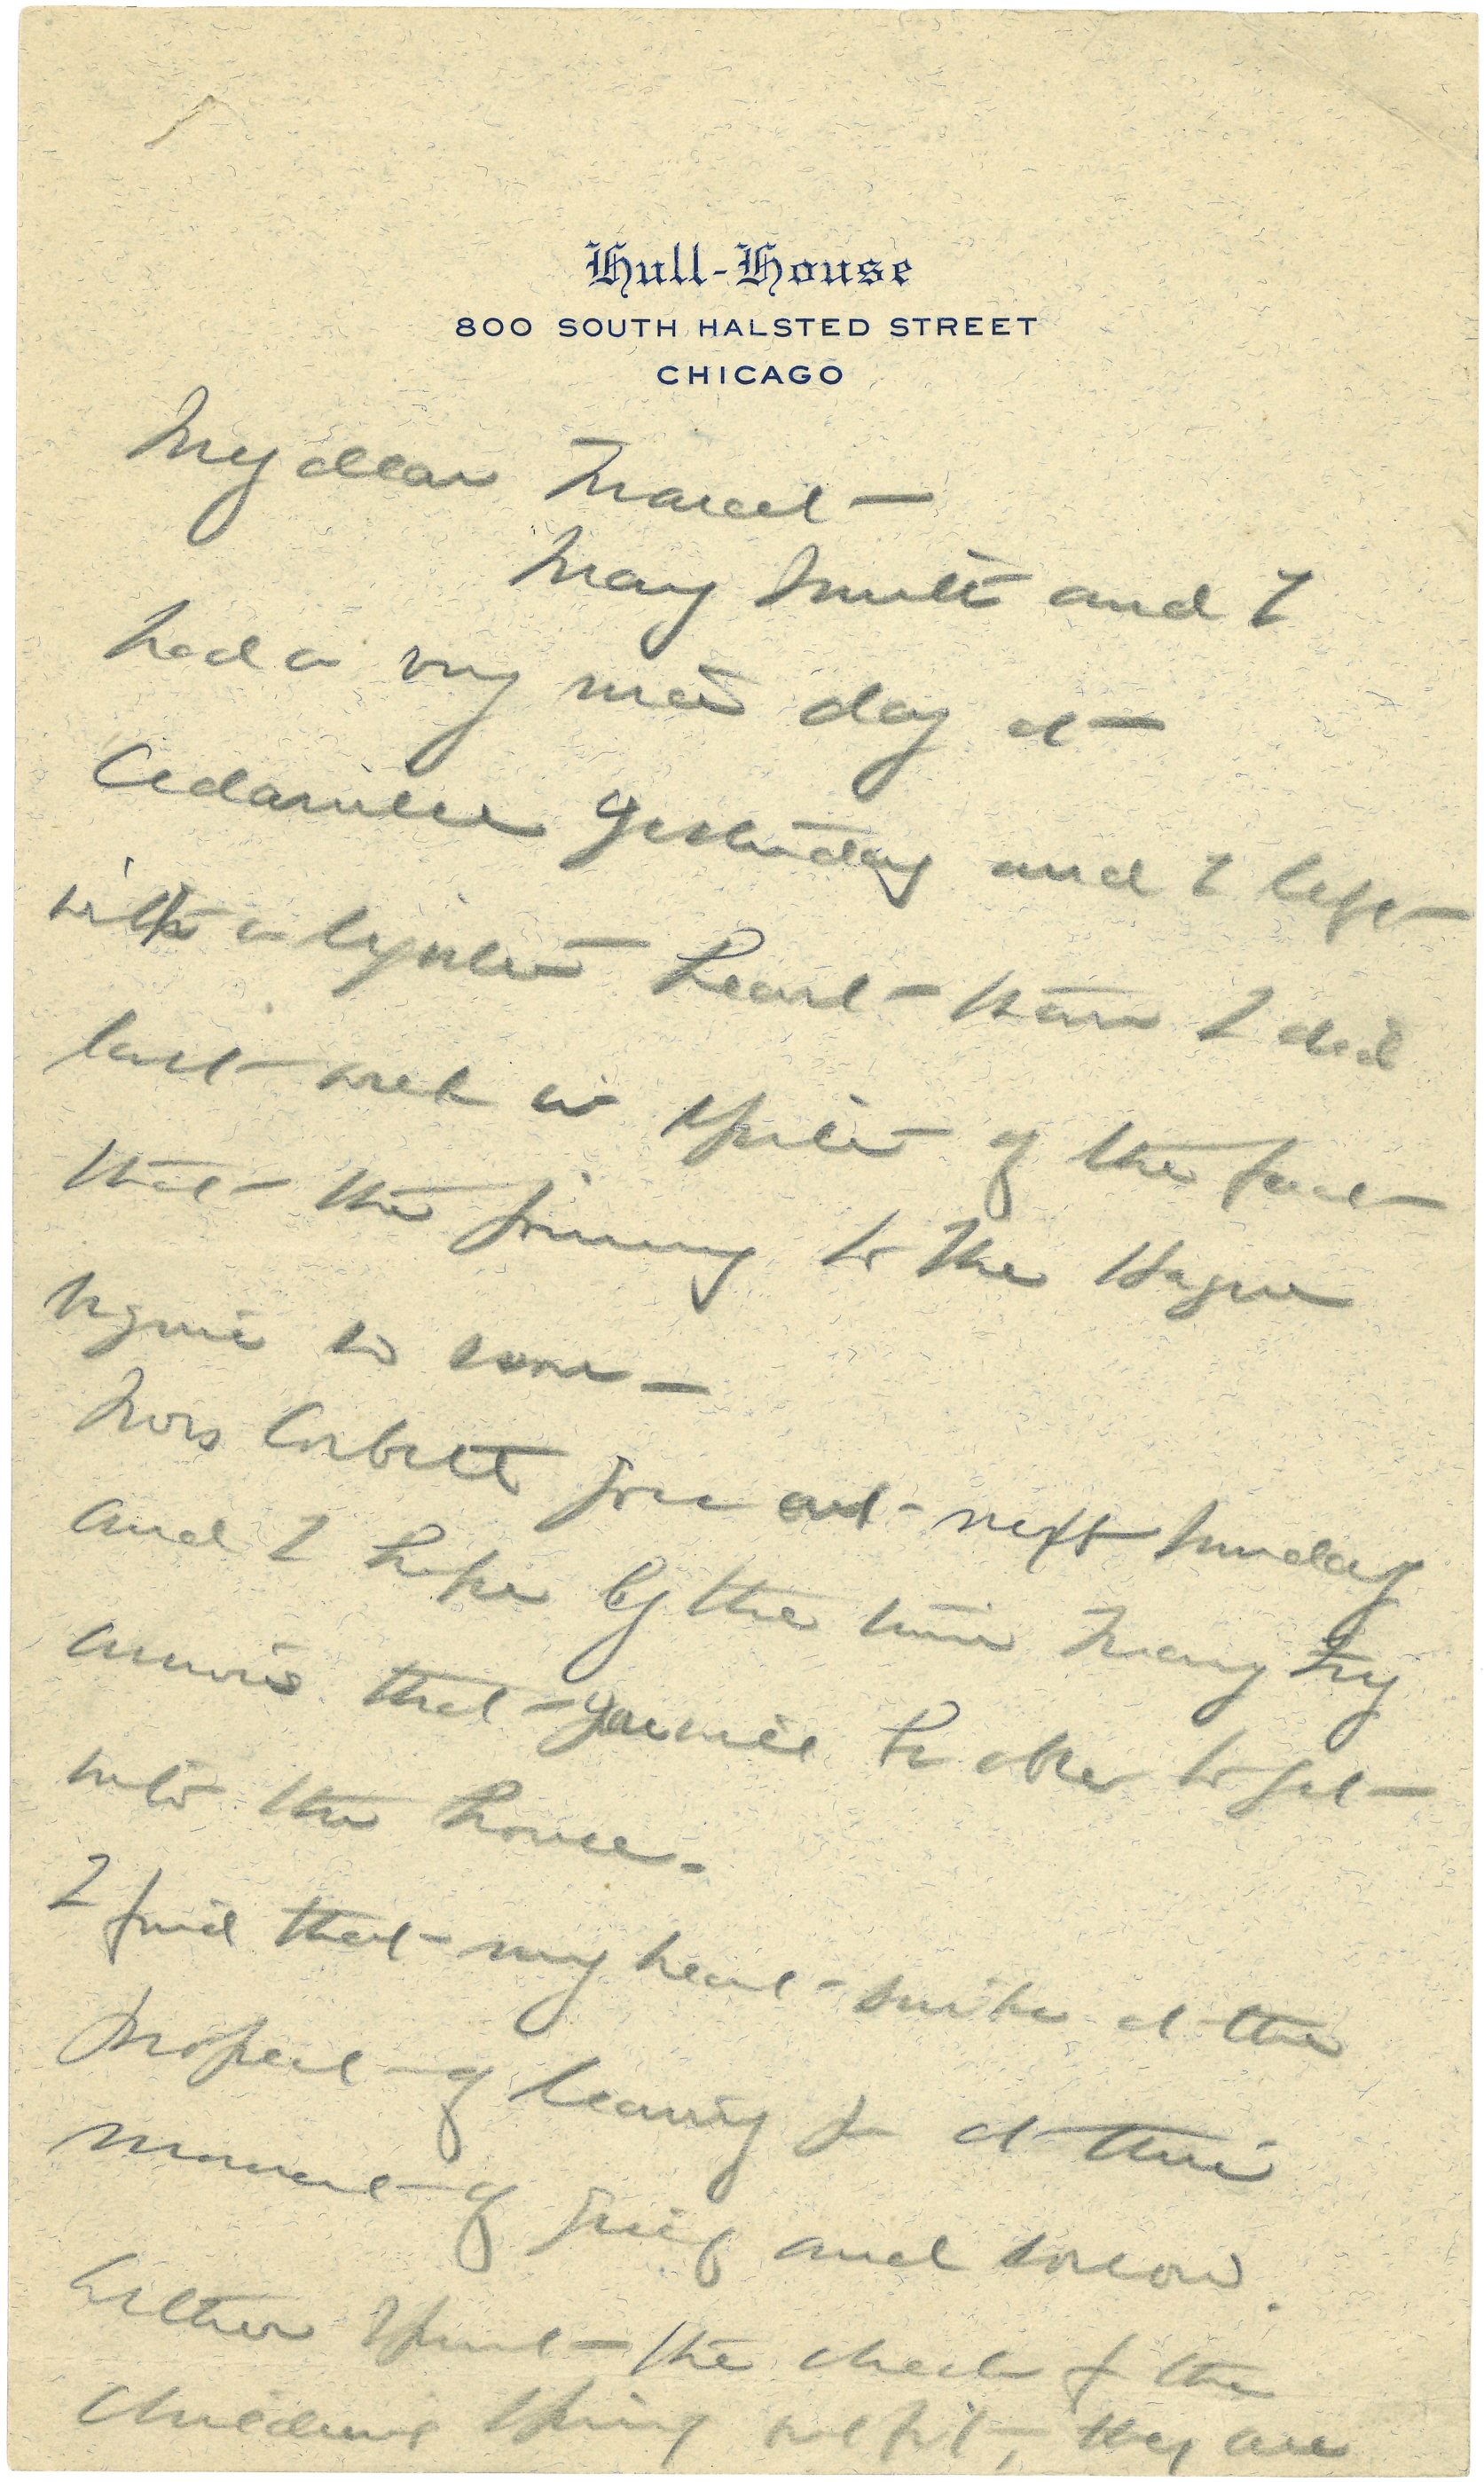 Hull-House
800 SOUTH HALSTED STREET
CHICAGO
My dear Marcet —
Mary Smith and I
had a very nice day at
Cedarville yesterday and I left
with a lighter heart than I did
last week in spite of the fact
that the journey to the Hague
begins so soon —
Mrs Corbett goes out next Sunday
and I hope by the time Mary Fry
arrives that you will be able to get
into the house.
I find that my heart sinks at the
prospect of leaving you at this
moment of grief and sorrow.
Esther spent the check for the
children's spring outfit, they are